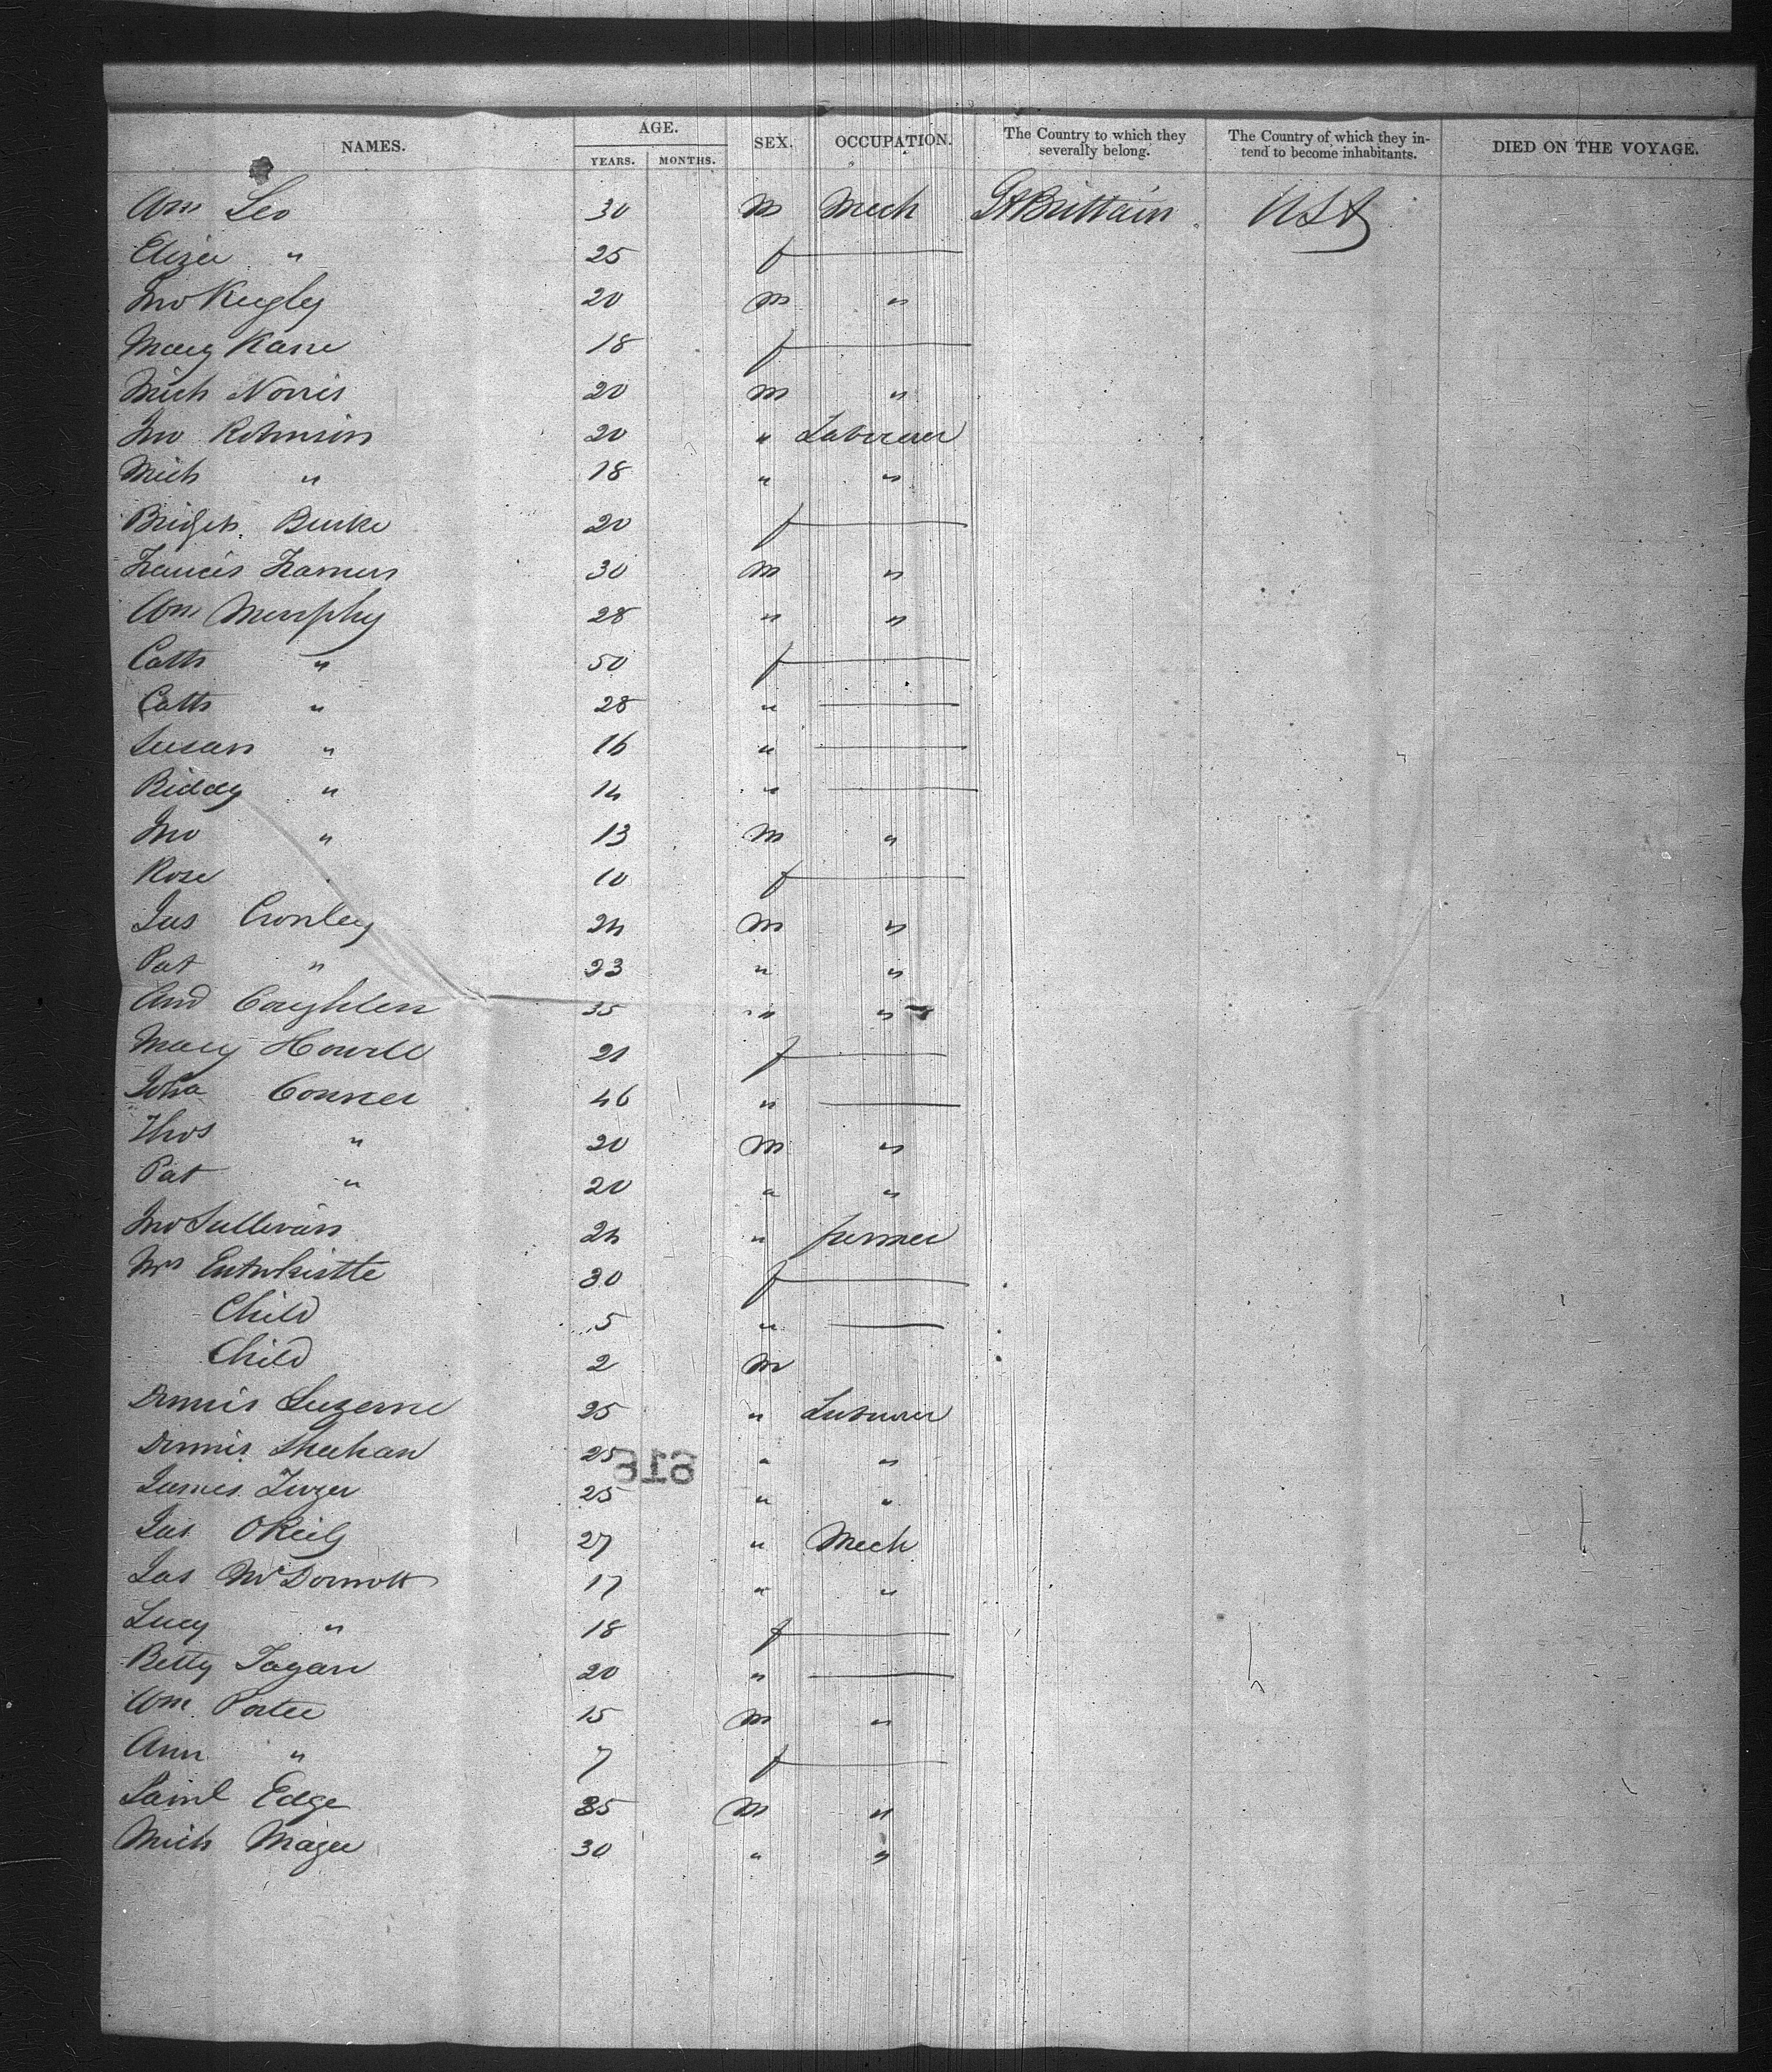 NAMES. AGE. YEARS. MONTHS. SEX. OCCUPATION. The Country to which they severally belong. The Country of which they intend to become inhabitants. DIED ON THE VOYAGE.
Wm Leo 30 M Mech Gt Brittain USA
Eliza " 25 f
Jno Kugley 20 M "
Mary Kane 18 f
Mich Norris 20 M "
Jno Robinson 20 " Labourer
Mich " 18 " "
Bridget Burke 20 f
Francis 30 M "
Wm Murphy 28 " "
Cath " 50 f
Cath " 28 "
Susan " 16 "
Biddy " 14 "
Jno " 13 M "
Rose 10 f
Jas Cronley 24 M "
Pat " 23 " "
And Coughlen 35 " "
Mary Howell 21 f
Joha Conner 46 "
Thos " 20 M "
Pat " 20 " "
Jno Sullivan 24 " farmer
Mrs Entwhistle 30 f
Child 5 "
Child 2 M
Dennis Luzerne 25 " Labourer
Dennis Sheehan 25 " "
James 25 " "
Jas OReily 27 " Mech
Jas McDermott 17 " "
Lucy " 18 f
Betty Fagan 20 "
Wm Porter 15 M "
Ann " 7 f
Saml Edge 35 M "
Mich Magee 30 " "